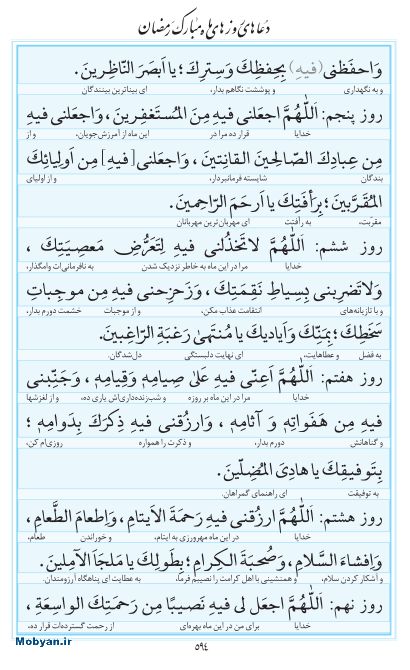 دعاهای روزهای ماه مبارک رمضان
وَاحفَظنی (فیهِ) بِحِفظِكَ وَسِترِكَ؛ یا اَبصَرَ النّاظِرینَ.
و به نگهداری و پوششت نگاهم بدار، ای بیناترین بینندگان
روز پنجم: اَللّٰهُمَّ اجعَلنی فیهِ مِنَ المُستَغفِرینَ، وَاجعَلنی فیهِ
خدایا قرار ده مرا در این ماه از آمرزش‌جویان، و از
مِن عِبادِكَ الصّالِحینَ القانِتینَ، وَاجعَلنی [فیهِ] مِن اَولِیائِكَ
بندگان شایسته فرمانبردار، و از اولیای
المُقَرَّبینَ؛ بِرَأفَتِكَ یا اَرحَمَ الرّاحِمینَ.
مقرّبت، به رأفتت ای مهربان‌ترین مهربانان
روز ششم: اَللّٰهُمَّ لاتَخذُلنی فیهِ لِتَعَرُّضِ مَعصِیَتِكَ،
خدایا مرا در این ماه به خاطر نزدیک شدن به نافرمانی‌ات وامگذار،
وَلاتَضرِبنی بِسِیاطِ نَقِمَتِكَ، وَزَحزِحنی فیهِ مِن موجِباتِ
و با تازیانه‌های انتقامت عذاب مکن، و از موجبات خشمت دورم بدار،
سَخَطِكَ؛ بِمَنِّكَ وَاَیادیكَ یا مُنتَهیٰ رَغبَةِ الرّاغِبینَ.
به فضل و عطاهایت، ای نهایت دلبستگی دل‌شدگان.
روز هفتم: اَللّٰهُمَّ اَعِنّی فیهِ عَلیٰ صِیامِهٖ وَقِیامِهٖ، وَجَنِّبنی
خدایا مرا در این ماه بر روزه و شب‌زنده‌داری‌اش یاری ده، و از لغزشها
فیهِ مِن هَفَواتِهٖ وَ آثامِهٖ، وَارزُقنی فیهِ ذِکرَكَ بِدَوامِهٖ؛
و گناهانش دورم بدار، و ذکرت را همواره روزی‌ام کن،
بِتَوفیقِكَ یا هادِیَ المُضِلّینَ.
به توفیقت ای راهنمای گمراهان.
روز هشتم: اَللّٰهُمَّ ارزُقنی فیهِ رَحمَةَ الاَیتامِ، وَاِطعامَ الطَّعامِ،
خدایا در این ماه مهرورزی به ایتام، و خوراندن طعام،
وَاِفشاءَ السَّلامِ، وَصُحبَةَ الکِرامِ؛ بِطَولِكَ یا مَلجَاَ الآمِلینَ.
و آشکار کردن سلام، و همنشینی با اهل کرامت را نصیبم فرما، به عطایت ای پناهگاه آرزومندان.
روز نهم: اَللّٰهُمَّ اجعَل لی فیهِ نَصیبًا مِن رَحمَتِكَ الواسِعَةِ،
خدایا برای من در این ماه بهره‌ای از رحمت گسترده‌ات قرار ده،
۵۹۴
Mobyan.ir